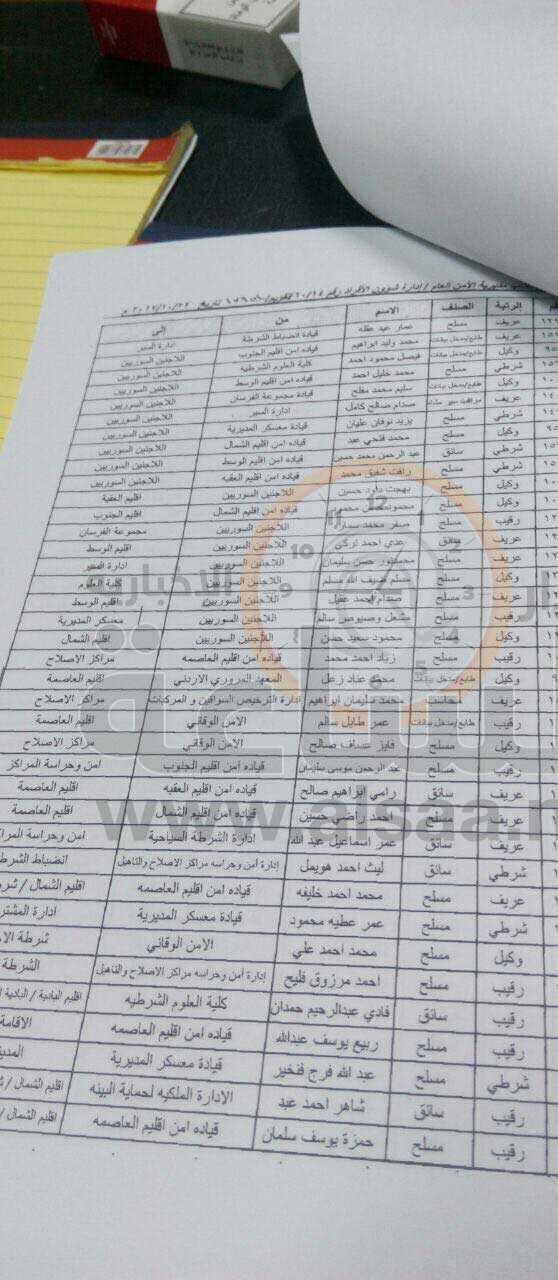 مديرية الأمن العام / ادارة شؤون الأفراد رقم
الرتبة الصنف الاسم من إلى
عريف مسلح عمار عيد عقله قيادة انضباط الشرطة ادارة السير
عريف طابع/مدخل بيانات محمد وليد ابراهيم قياده امن اقليم الجنوب اللاجئين السوريين
وكيل طابع/مدخل بيانات فيصل محمود احمد كلية العلوم الشرطيه اللاجئين السوريين
شرطي مسلح محمد خليل احمد قياده امن اقليم الوسط اللاجئين السوريين
وكيل طابع/مدخل بيانات سليم محمد مفلح قيادة مجموعة الفرسان اللاجئين السوريين
عريف مراقب سير صدام صالح كامل ادارة السير اللاجئين السوريين
شرطي مسلح يزيد نوفان عليان قيادة معسكر المديرية اللاجئين السوريين
وكيل مسلح محمد فتحي عبد قياده امن اقليم الشمال اللاجئين السوريين
شرطي سائق عبد الرحمن محمد حسين قياده امن اقليم الوسط اللاجئين السوريين
شرطي مسلح رافت شفيق محمد قياده امن اقليم العقبه اللاجئين السوريين
وكيل مسلح بهجت داود حسين اللاجئين السوريين اقليم العقبة
وكيل مسلح محمود محمود قياده امن اقليم الشمال اقليم الجنوب
رقيب مسلح صقر محمد اللاجئين السوريين مجموعة الفرسان
عريف سائق عدي احمد تركي اللاجئين السوريين اقليم الوسط
عريف مسلح حسن سليمان اللاجئين السوريين ادارة السير
وكيل مسلح مسلم ضيف الله مسلم اللاجئين السوريين كلية العلوم
عريف مسلح صدام احمد عقيل اللاجئين السوريين اقليم الوسط
رقيب مسلح مشعل وصيوص سالم اللاجئين السوريين معسكر المديرية
وكيل مسلح محمود سعيد حسن اللاجئين السوريين اقليم الشمال
رقيب مسلح زياد احمد محمد قياده امن اقليم العاصمه مراكز الاصلاح
وكيل طابع/مدخل بيانات محمد عناد زعل المعهد المروري الاردني اقليم العاصمة
عريف محاسب محمد سليمان ابراهيم ادارة الترخيص السواقين و المركبات مراكز الاصلاح
رقيب طابع/مدخل بيانات عمر طايل سالم الامن الوقائي اقليم العاصمة
وكيل مسلح فايز عساف صالح الامن الوقائي مراكز الاصلاح
رقيب مسلح عبد الرحمن موسى سليمان قياده امن اقليم الجنوب امن وحراسة المراكز
عريف سائق رامي ابراهيم صالح قياده امن اقليم العقبه اقليم العاصمة
عريف مسلح احمد راضي حسين قياده امن اقليم الشمال اقليم العاصمة
عريف سائق عمر اسماعيل عبد الله إدارة الشرطة السياحية امن وحراسة
شرطي سائق ليث احمد هويمل إدارة أمن وحراسه مراكز الاصلاح والتاهيل انضباط
عريف مسلح محمد احمد خليفه قياده امن اقليم العاصمه اقليم الشمال /
شرطي مسلح عمر عطيه محمود قيادة معسكر المديرية ادارة
وكيل مسلح محمد احمد علي الامن الوقائي شرطة
رقيب مسلح احمد مرزوق فليح إدارة أمن وحراسه مراكز الاصلاح والتاهيل الشرطة
رقيب سائق فادي عبدالرحيم حمدان كلية العلوم الشرطيه اقليم البادية / البادية
رقيب مسلح ربيع يوسف عبدالله قياده امن اقليم العاصمه الاقامة
شرطي مسلح عبد الله فرج فنخير قيادة معسكر المديرية
رقيب سائق شاهر احمد عبد الادارة الملكيه لحماية البيئه اقليم الشمال /
رقيب مسلح حمزة يوسف سلمان قياده امن اقليم العاصمه اقليم الشمال /
ساعة
www.alsaa.n